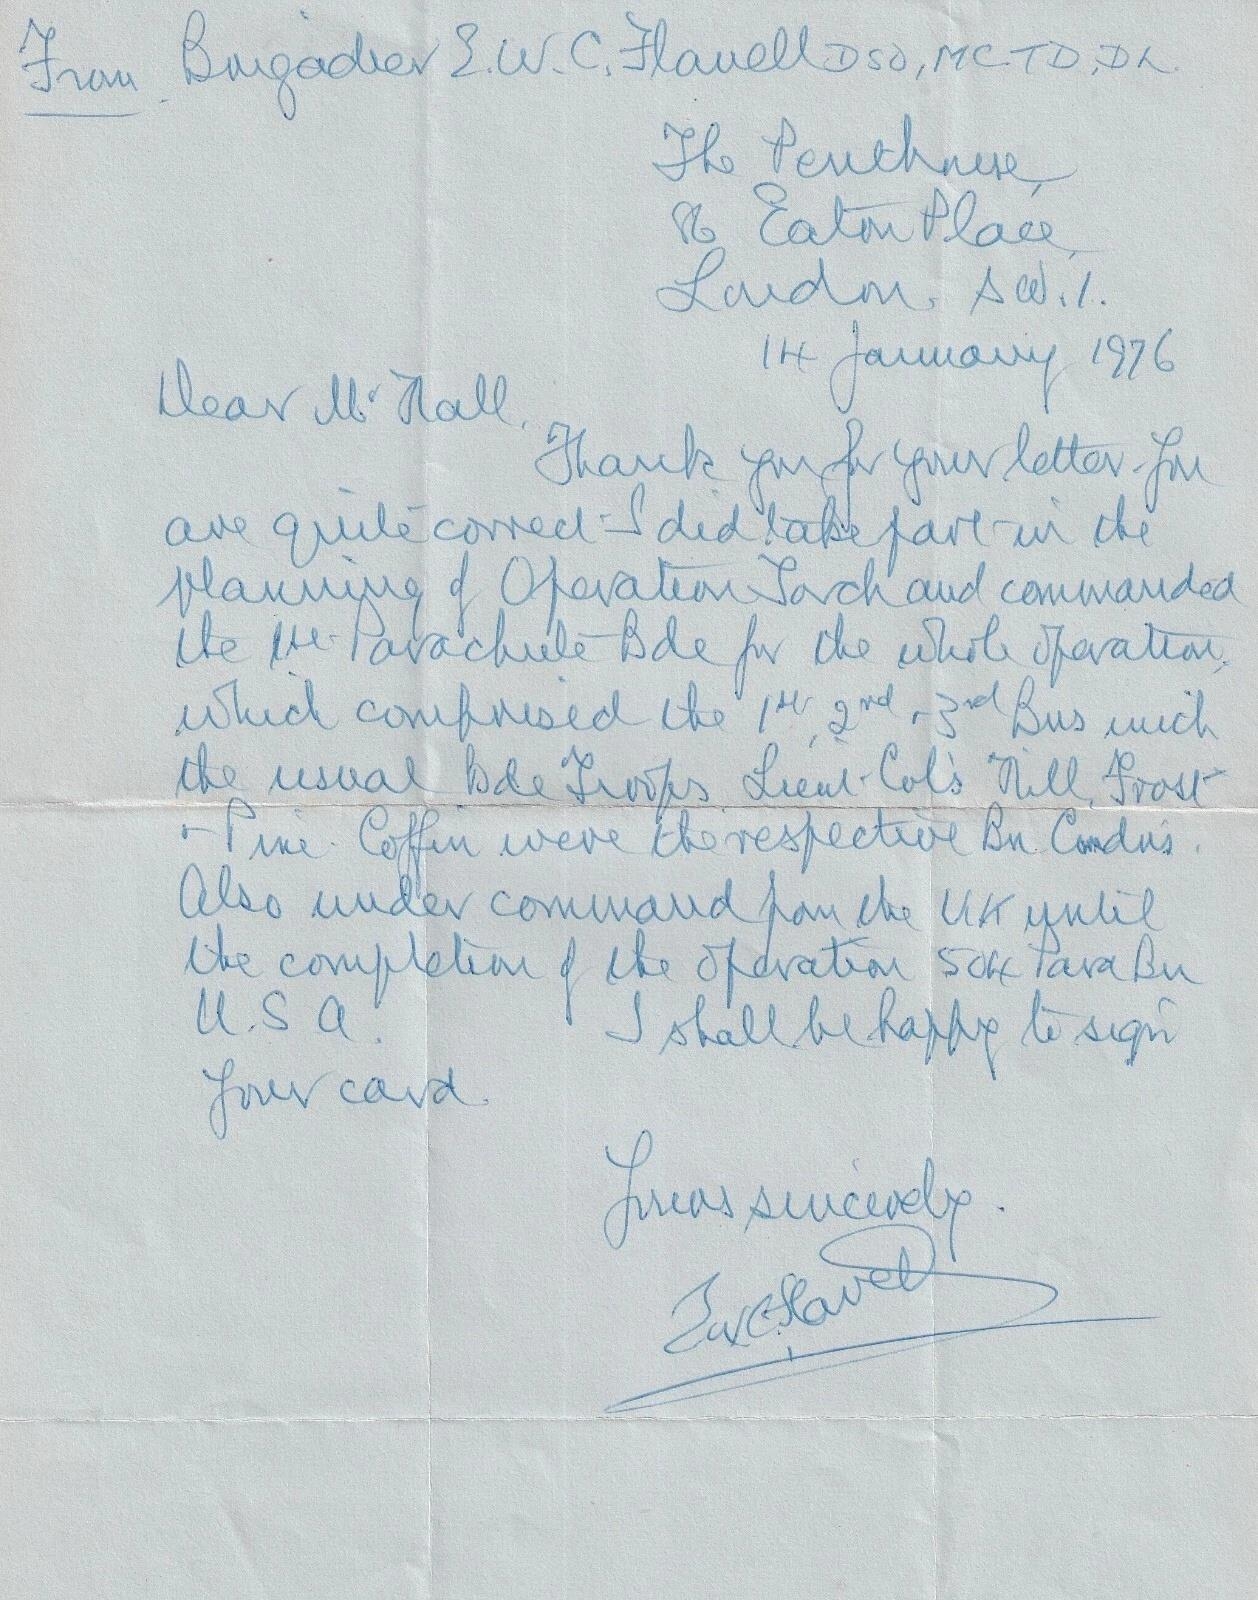 From Brigadier E.W.C. Flavell DSO, MC TD, DL.
The Penthouse,
86 Eaton Place,
London. S.W.1.
14 January 1976
Dear Mr Hall,
Thank you for your letter. You
are quite correct - I did take part in the
planning of Operation Torch and commanded
the 1st Parachute Bde for the whole operation,
which comprised the 1st, 2nd, + 3rd Bns with
the usual Bde Troops Lieut-Col's Hill, Frost
+ Pine Coffin were the respective Bn Comdrs.
Also under command from the UK until
the completion of the operation 504 Para Bn
U.S A. I shall be happy to sign
your card.
Yours sincerely.
EWC Flavell